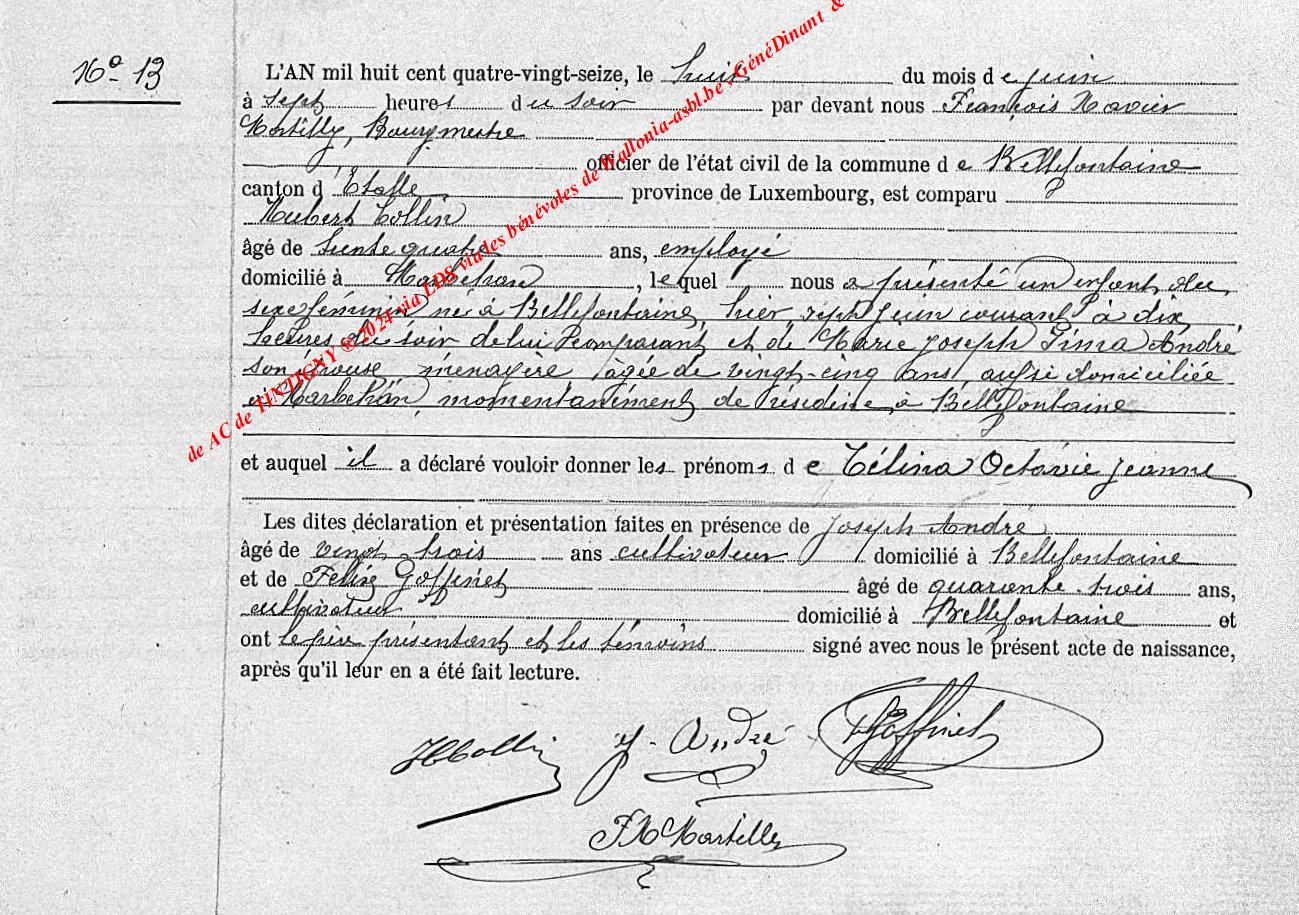 N° 13
L'AN mil huit cent quatre-vingt-seize, le huit du mois de juin
à sept heures du soir par devant nous François Xavier
Martilly, Bourgmestre
officier de l'état civil de la commune de Bellefontaine
canton d'Etalle province de Luxembourg, est comparu
Hubert Collin
âgé de trente quatre ans, employé
domicilié à Marbehan, lequel nous a présenté un enfant du
sexe féminin né à Bellefontaine, hier sept juin courant à dix
heures du soir de lui comparant et de Marie Joseph André
son épouse ménagère âgée de vingt-cinq ans, aussi domiciliée
à Marbehan, momentanément de résidence à Bellefontaine
et auquel il a déclaré vouloir donner les prénoms de Célina Octavie Jeanne
Les dites déclaration et présentation faites en présence de Joseph André
âgé de vingt trois ans cultivateur domicilié à Bellefontaine
et de Félix Goffinet âgé de quarante-trois ans,
cultivateur domicilié à Bellefontaine et
ont le père présentant et les témoins signé avec nous le présent acte de naissance,
après qu'il leur en a été fait lecture.
HCollin J. André Goffinet
FX Martilly
de AC de TINTIGNY ®2024 via LDS via les bénévoles de Wallonia-asbl.be, GénéDinant &